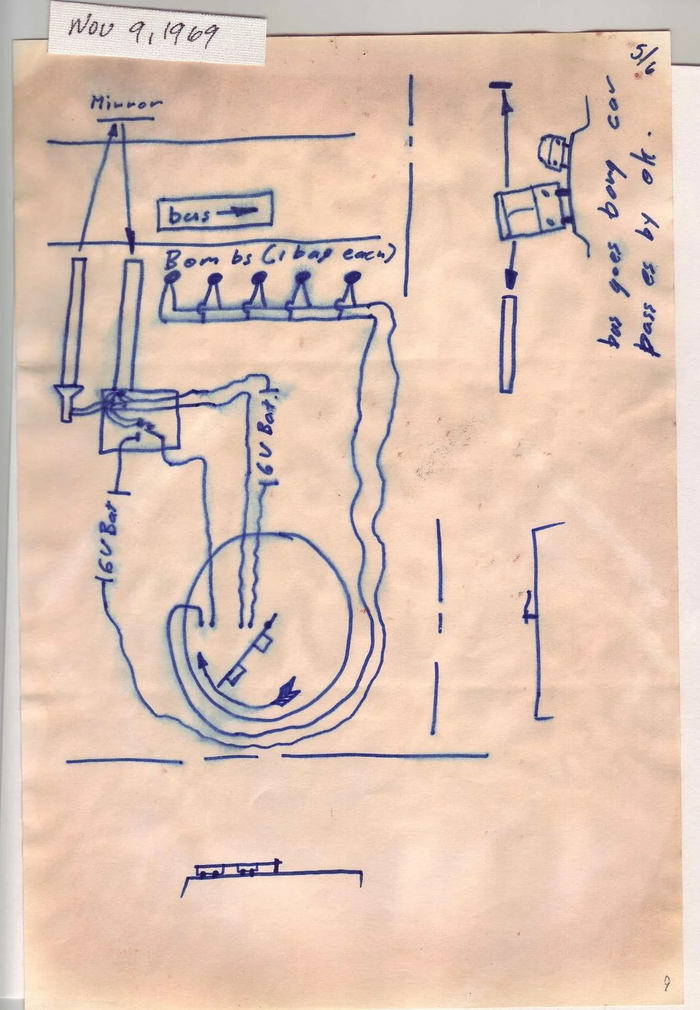 NOV 9, 1969
5/6
Mirror
bus
Bombs (1 bag each)
6V Bat.
6V Bat
bus goes bomg car
passes by ok.